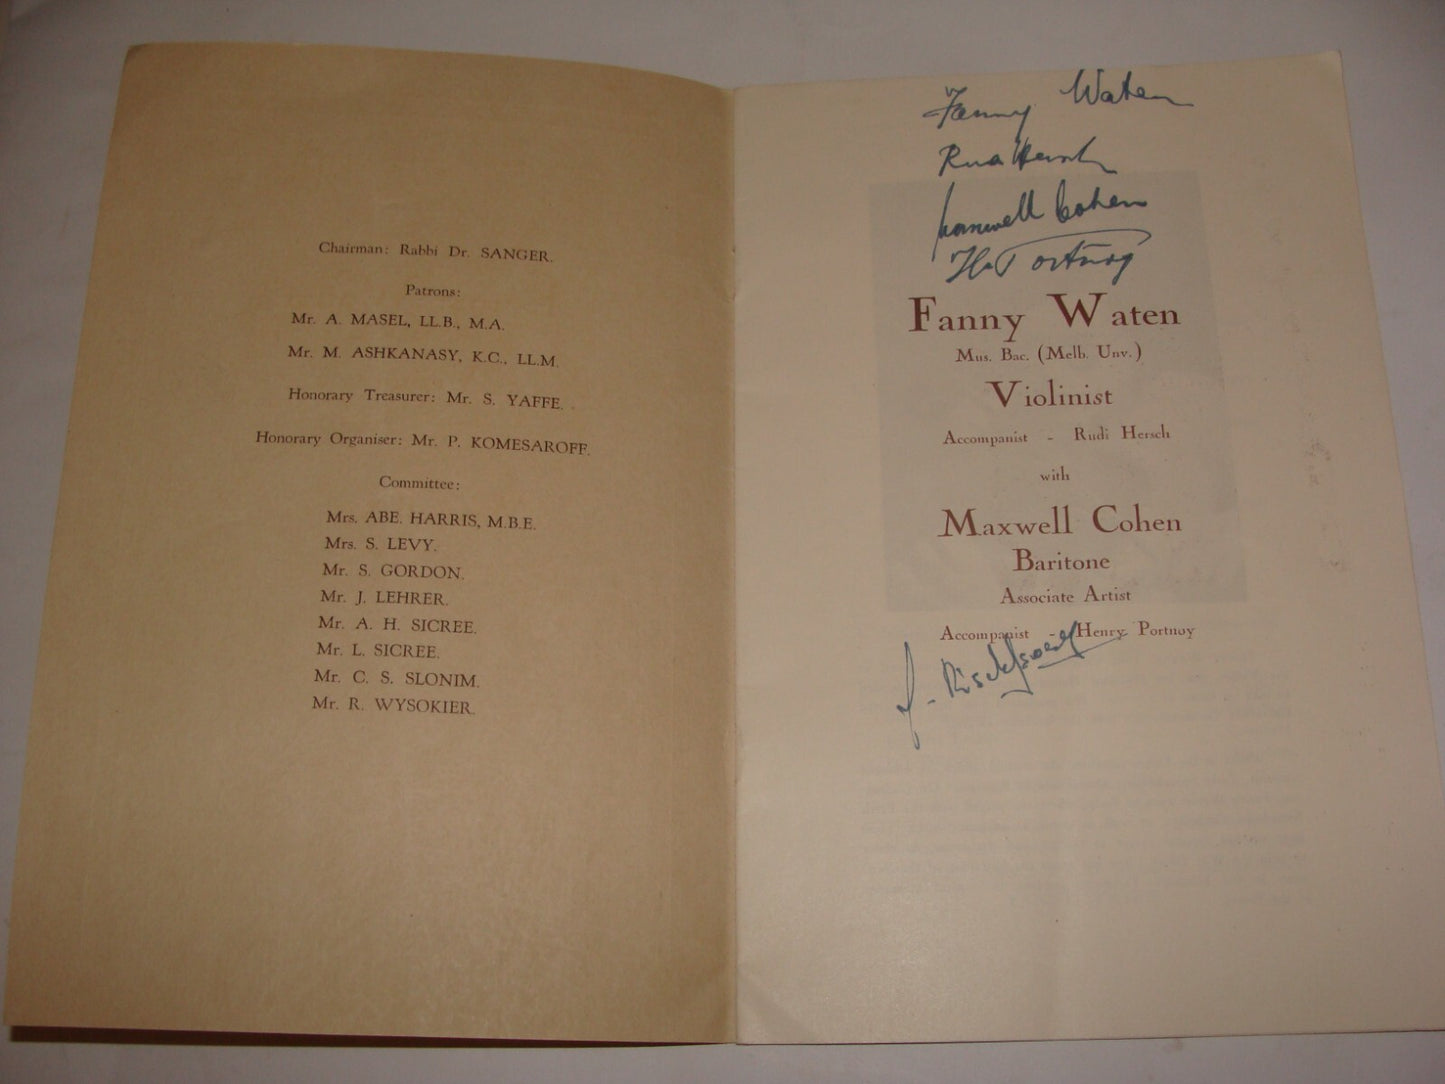 Chairman: Rabbi Dr. SANGER.
Patrons:
Mr. A. MASEL, LL.B., M.A.
Mr. M. ASHKANASY, K.C., LL.M.
Honorary Treasurer: Mr. S. YAFFE.
Honorary Organiser: Mr. P. KOMESAROFF.
Committee:
Mrs. ABE. HARRIS, M.B.E.
Mrs. S. LEVY.
Mr. S. GORDON.
Mr. J. LEHRER.
Mr. A. H. SICREE.
Mr. L. SICREE.
Mr. C. S. SLONIM.
Mr. R. WYSOKIER.
Fanny Waten
Hersch
Maxwell Cohen
Portnoy
Fanny Waten
Mus. Bac. (Melb. Unv.)
Violinist
Accompanist - Rudi Hersch
with
Maxwell Cohen
Baritone
Associate Artist
Accompanist - Henry Portnoy